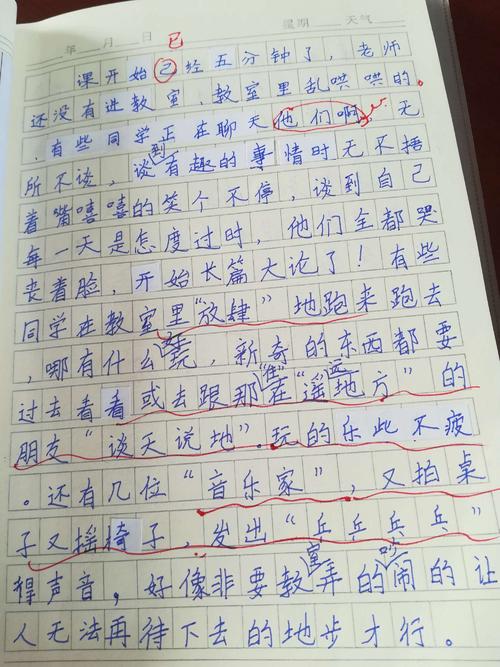 年 月 日 已 星期 天气
课开始己经五分钟了，老师
还没有进教室，教室里乱哄哄的。
有些同学正在聊天他们啊，无
所不谈，谈到有趣的事情时无不捂
着嘴嘻嘻的笑个不停，谈到自己
每一天是怎度过时，他们全都哭
丧着脸，开始长篇大论了！有些
同学在教室里“放肆”地跑来跑去
，哪有什么，新奇的东西都要
过去看看或去跟那在“遥远地方”的
朋友“谈天说地”.玩的乐此不疲
。还有几位“音乐家”，又拍桌
子又摇椅子，发出“乒乒乓乓”
声音，好像非要教室弄的吵闹的让
人无法再待下去的地步才行。